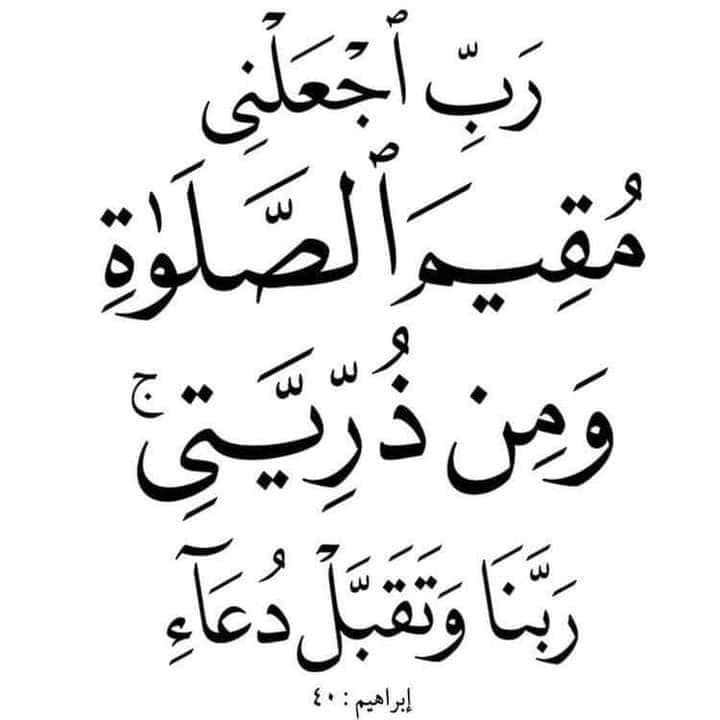 رَبِّ ٱجْعَلْنِى
مُقِيمَ ٱلصَّلَوٰةِ
وَمِن ذُرِّيَّتِى ۚ
رَبَّنَا وَتَقَبَّلْ دُعَآءِ
إبراهيم : ٤٠